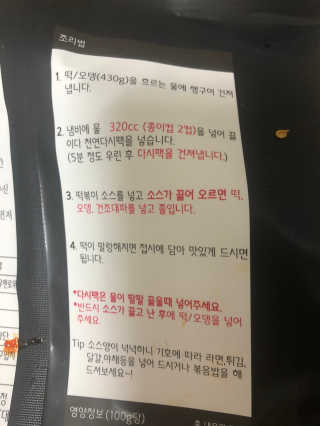 조리법
1. 떡/오뎅(430g)을 흐르는 물에 헹구어 건져
냅니다.
2. 냄비에 물 320cc (종이컵 2컵)을 넣어 끓
이다 천연다시팩을 넣습니다.
(5분 정도 우린 후 다시팩을 건져냅니다.)
3. 떡볶이 소스를 넣고 소스가 끓어 오르면 떡,
오뎅, 건조대파를 넣고 졸입니다.
4. 떡이 말랑해지면 접시에 담아 맛있게 드시면
됩니다.
*다시팩은 물이 팔팔 끓을때 넣어주세요.
*반드시 소스가 끓고 난 후에 떡/오뎅을 넣어
주세요.
Tip 소스양이 넉넉하니 기호에 따라 라면,튀김,
달걀,야채등을 넣어 드시거나 볶음밥을 해
드셔보세요~!
영양정보 (100g당)